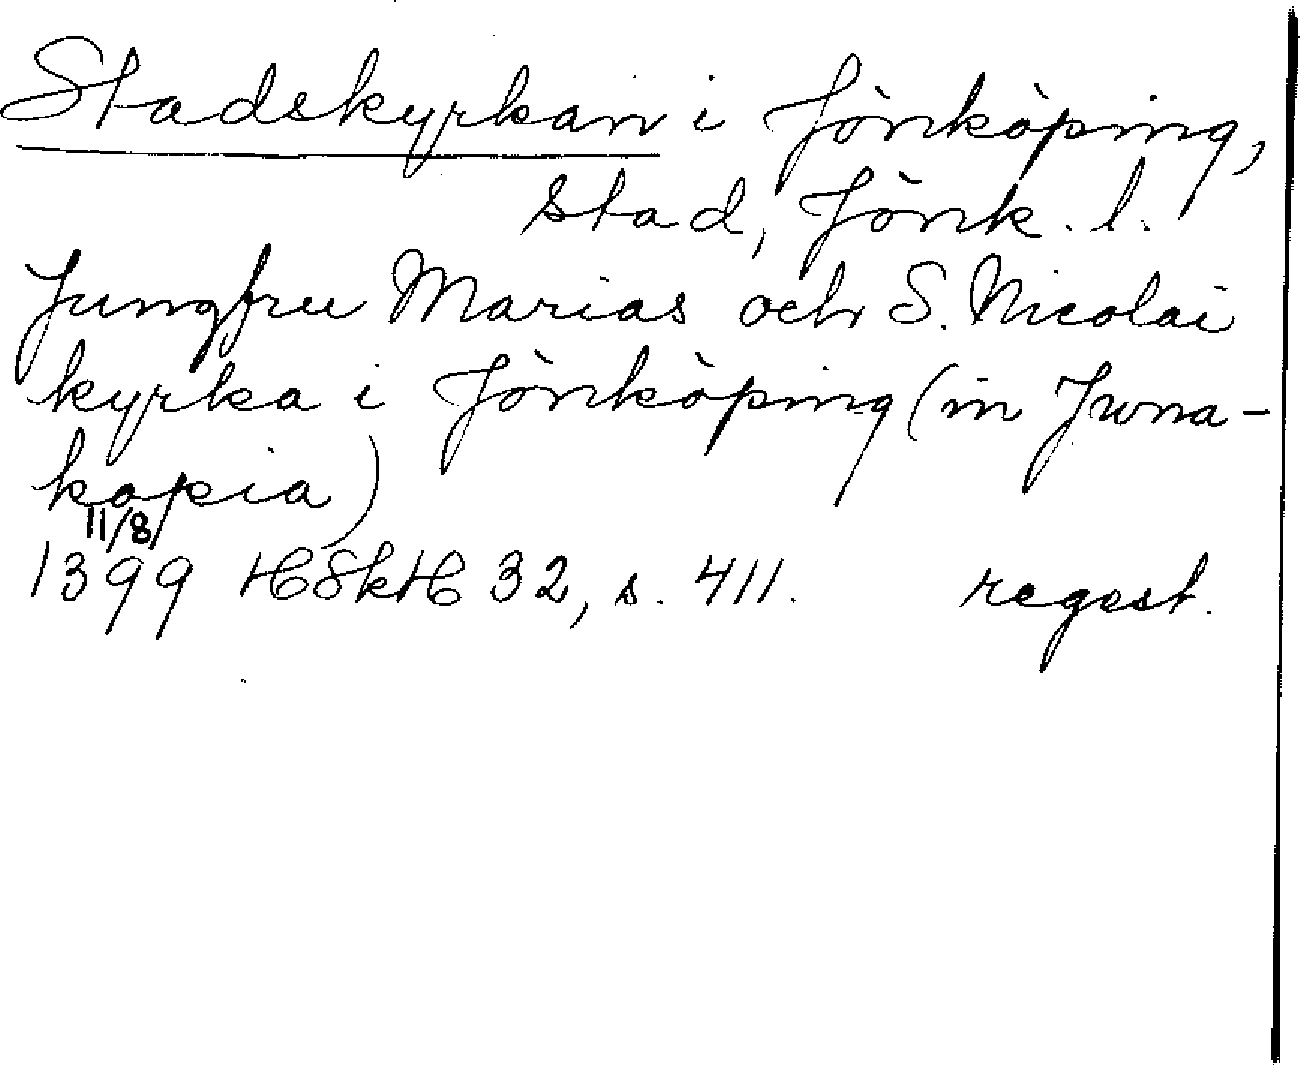 Stadskyrkan i Jönköping,
stad, Jönk. l.
Jungfru Marias och S. Nicolai
kyrka i Jönköping (in Juna-
kopia)
11/8
1399 HSkH 32, s. 411. regest.